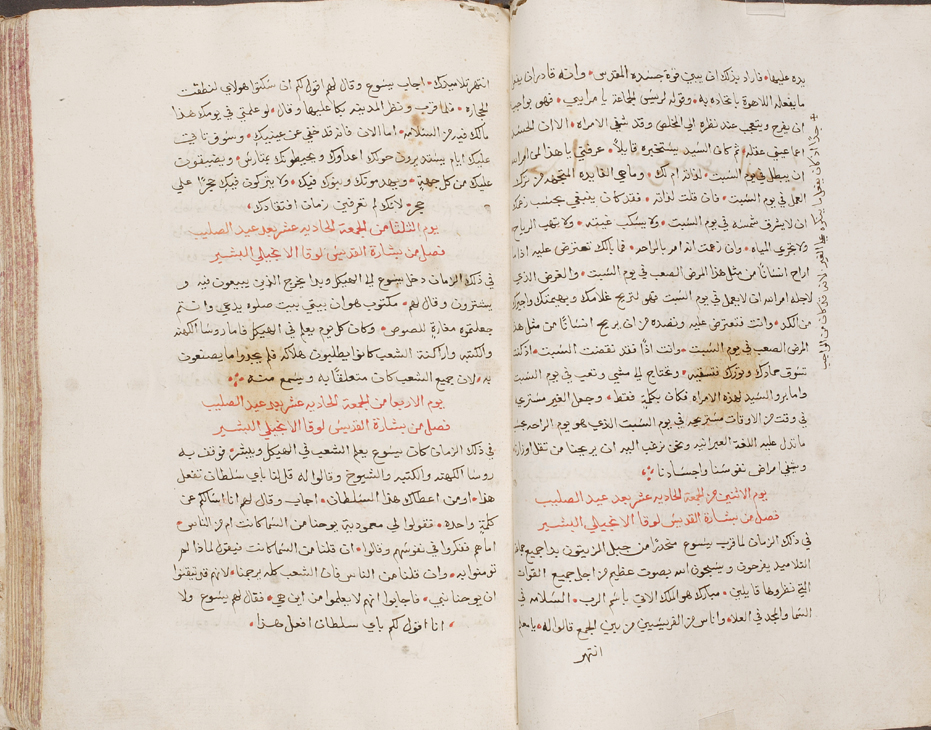 يده عليها • فاراد بذلك ان يبين قوة جسده المقدس • وانه قادر ان يفعل
ما يفعله اللاهوة باتحاده به • وقوله لرييس الجماعة يا مرايي • فهو يواجب
ان يفرح ويتعجب عند نظره الي المخلص وقد شفي الامراه • الا ان الحسد
اعما عيني عقله • ثم كان السيد يستخبره قايلاً • عرفني يا هذا لمن امر الله
ان يبطل في يوم السبت • لذاته ام لك • وما هي الفايده المتجهه من ترك
العمل في يوم السبت • فان قلت لذاته • فقد كان ينبغي بحسب زعمك
ان لا يشرق شمسه في يوم السبت • ولا يسكب غيثه • ولا يهب الرياح
ولا يجري المياه • وان زعمت انه امر بالراحه • فما بالك تعترض عليه اذا
اراح انسانًا من مثل هذا المرض الصعب في يوم السبت • والغرض الذي
لاجله امر الله ان لا يعمل في يوم السبت فهو لتريح غلامك وبهيمتك واجيرك
من الكد • وانت فتعترض عليه وتصده من ان يريح انسانًا من مثل هذا
المرض الصعب في يوم السبت • وانت اذًا فقد نقضت السبت • اذ كنت
تسوق حمارك وثورك فتسقيه • وتحتاج الي مشي وتعب في يوم السبت
واما برو السيد لهذه الامراه فكان بكلمة فقط • وجعل الغير مستريح
في وقت من الاوقات مستريحه في يوم السبت الذي هو يوم الراحه بحسب
ما تدل عليه اللغة العبرانيه ونحن نرغب اليه ان يريحنا من ثقل اوزارنا
ويشفي امراض نفوسنا واجسادنا
يوم الاثنين من الجمعة الحاديه عشر بعد عيد الصليب
فصل من بشارة القديس لوقا الانجيلي البشير
في ذلك الزمان لما قرب يسوع منحدرًا من جبل الزيتون بدا جميع جماعة
التلاميد يفرحون ويسبحون الله بصوت عظيم من اجل جميع القوات
التي نظروها قايلين • مبارك هو الملك الاتي باسم الرب • السلامه في
السما والمجد في العلا • واناس من الفريسيين من بين الجمع قالوا له • يا معلم
انتهر
انتهر تلاميدك • اجاب يسوع وقال لهم اقول لكم ان سكتوا هولاي لنطقت
الحجاره • فلما قرب ونظر المدينه بكا عليها وقال • لو علمتي في يومك هذا
مالك فيه من السلامه • اما الان فانه قد خفي عن عينيك • وسوف تاتي
عليك ايام يستديرون حولك اعداوك ويحيطونك بمتارس • ويضيقون
عليك من كل جهة • ويهدمونك وبنوك فيك • ولا يتركون فيك حجرًا علي
حجر • لانك لم تعرفين زمان افتقادك •
يوم الثلثا من الجمعة الحاديه عشر بعد عيد الصليب
فصل من بشارة القديس لوقا الانجيلي البشير
في ذلك الزمان دخل يسوع الي الهيكل وبدا يخرج الذين يبيعون فيه و
يشترون وقال لهم • مكتوب هو ان بيتي بيت صلوه يدعي وانتم
جعلتموه مغارة للصوص • وكان كل يوم يعلم في الهيكل فاما روسا الكهنه
والكتبه واراكنة الشعب كانوا يطلبون هلاكه فلم يجدوا ما يصنعون
به • لان جميع الشعب كان متعلقًا به ويسمع منه
يوم الاربعا من الجمعة الحاديه عشر بعد عيد الصليب
فصل من بشارة القديس لوقا الانجيلي البشير
في ذلك الزمان كان يسوع يعلم الشعب في الهيكل ويبشر • فوقف به
روسا الكهنه والكتبه والشيوخ وقالوا له قل لنا باي سلطان تفعل
هذا • او من اعطاك هذا السلطان • اجاب وقال لهم انا اسالكم عن
كلمة واحده • فقولوا لي معمودية يوحنا من السما كانت ام من الناس •
اما هم ففكروا في نفوسهم وقالوا • ان قلنا من السما كانت فيقول لماذا لم
تومنوا به • وان قلنا من الناس فان الشعب كله يرجمنا • لانهم قد تيقنوا
ان يوحنا نبي • فاجابوا انهم لا يعلموا من اين هي • فقال لهم يسوع ولا
انا اقول لكم باي سلطان افعل هذا •